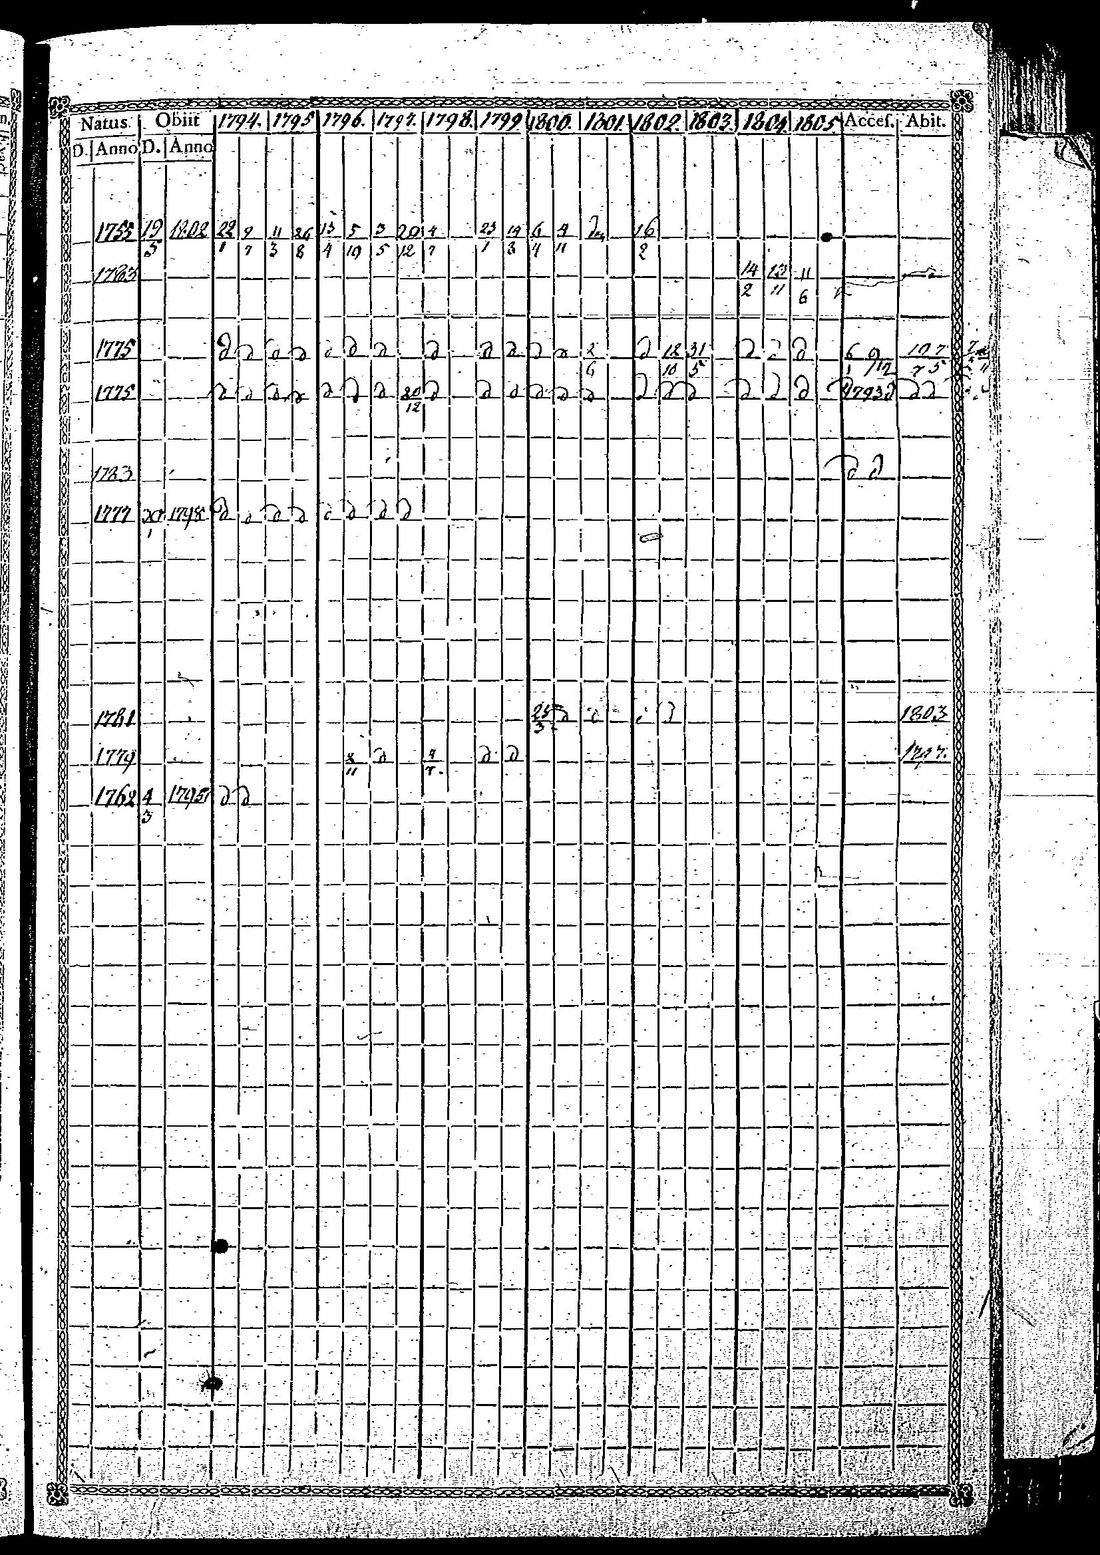 Natus. Obiit 1794. 1795 1796. 1797. 1798. 1799 1800. 1801 1802. 1803. 1804 1805 Accef. Abit.
D. Anno D. Anno
1755 19/5 1802 22/1 9/7 11/3 26/8 13/4 5/10 3/5 20/12 4/7 23/1 14/3 6/4 9/11 16/2
1763 14/2 13/11 11/6
1775 ∂ ∂ ∂ ∂ ∂ ∂ ∂ ∂ ∂ ∂ ∂ ∂ 2/6 ∂ 18/10 31/5 ∂ ∂ ∂
1775 ∂ ∂ ∂ ∂ ∂ ∂ ∂ 20/12 ∂ ∂ ∂ ∂ ∂ ∂ ∂ ∂ ∂ ∂ ∂ ∂ 1793 ∂ ∂ ∂
1783 ∂ ∂
1777 1798 ∂ ∂ ∂ ∂ ∂ ∂ ∂ ∂
1781 25/3 ∂ 1803
1779 8/11 ∂ 4/7. ∂ ∂ 1797.
1762 4/3 1795 ∂ ∂